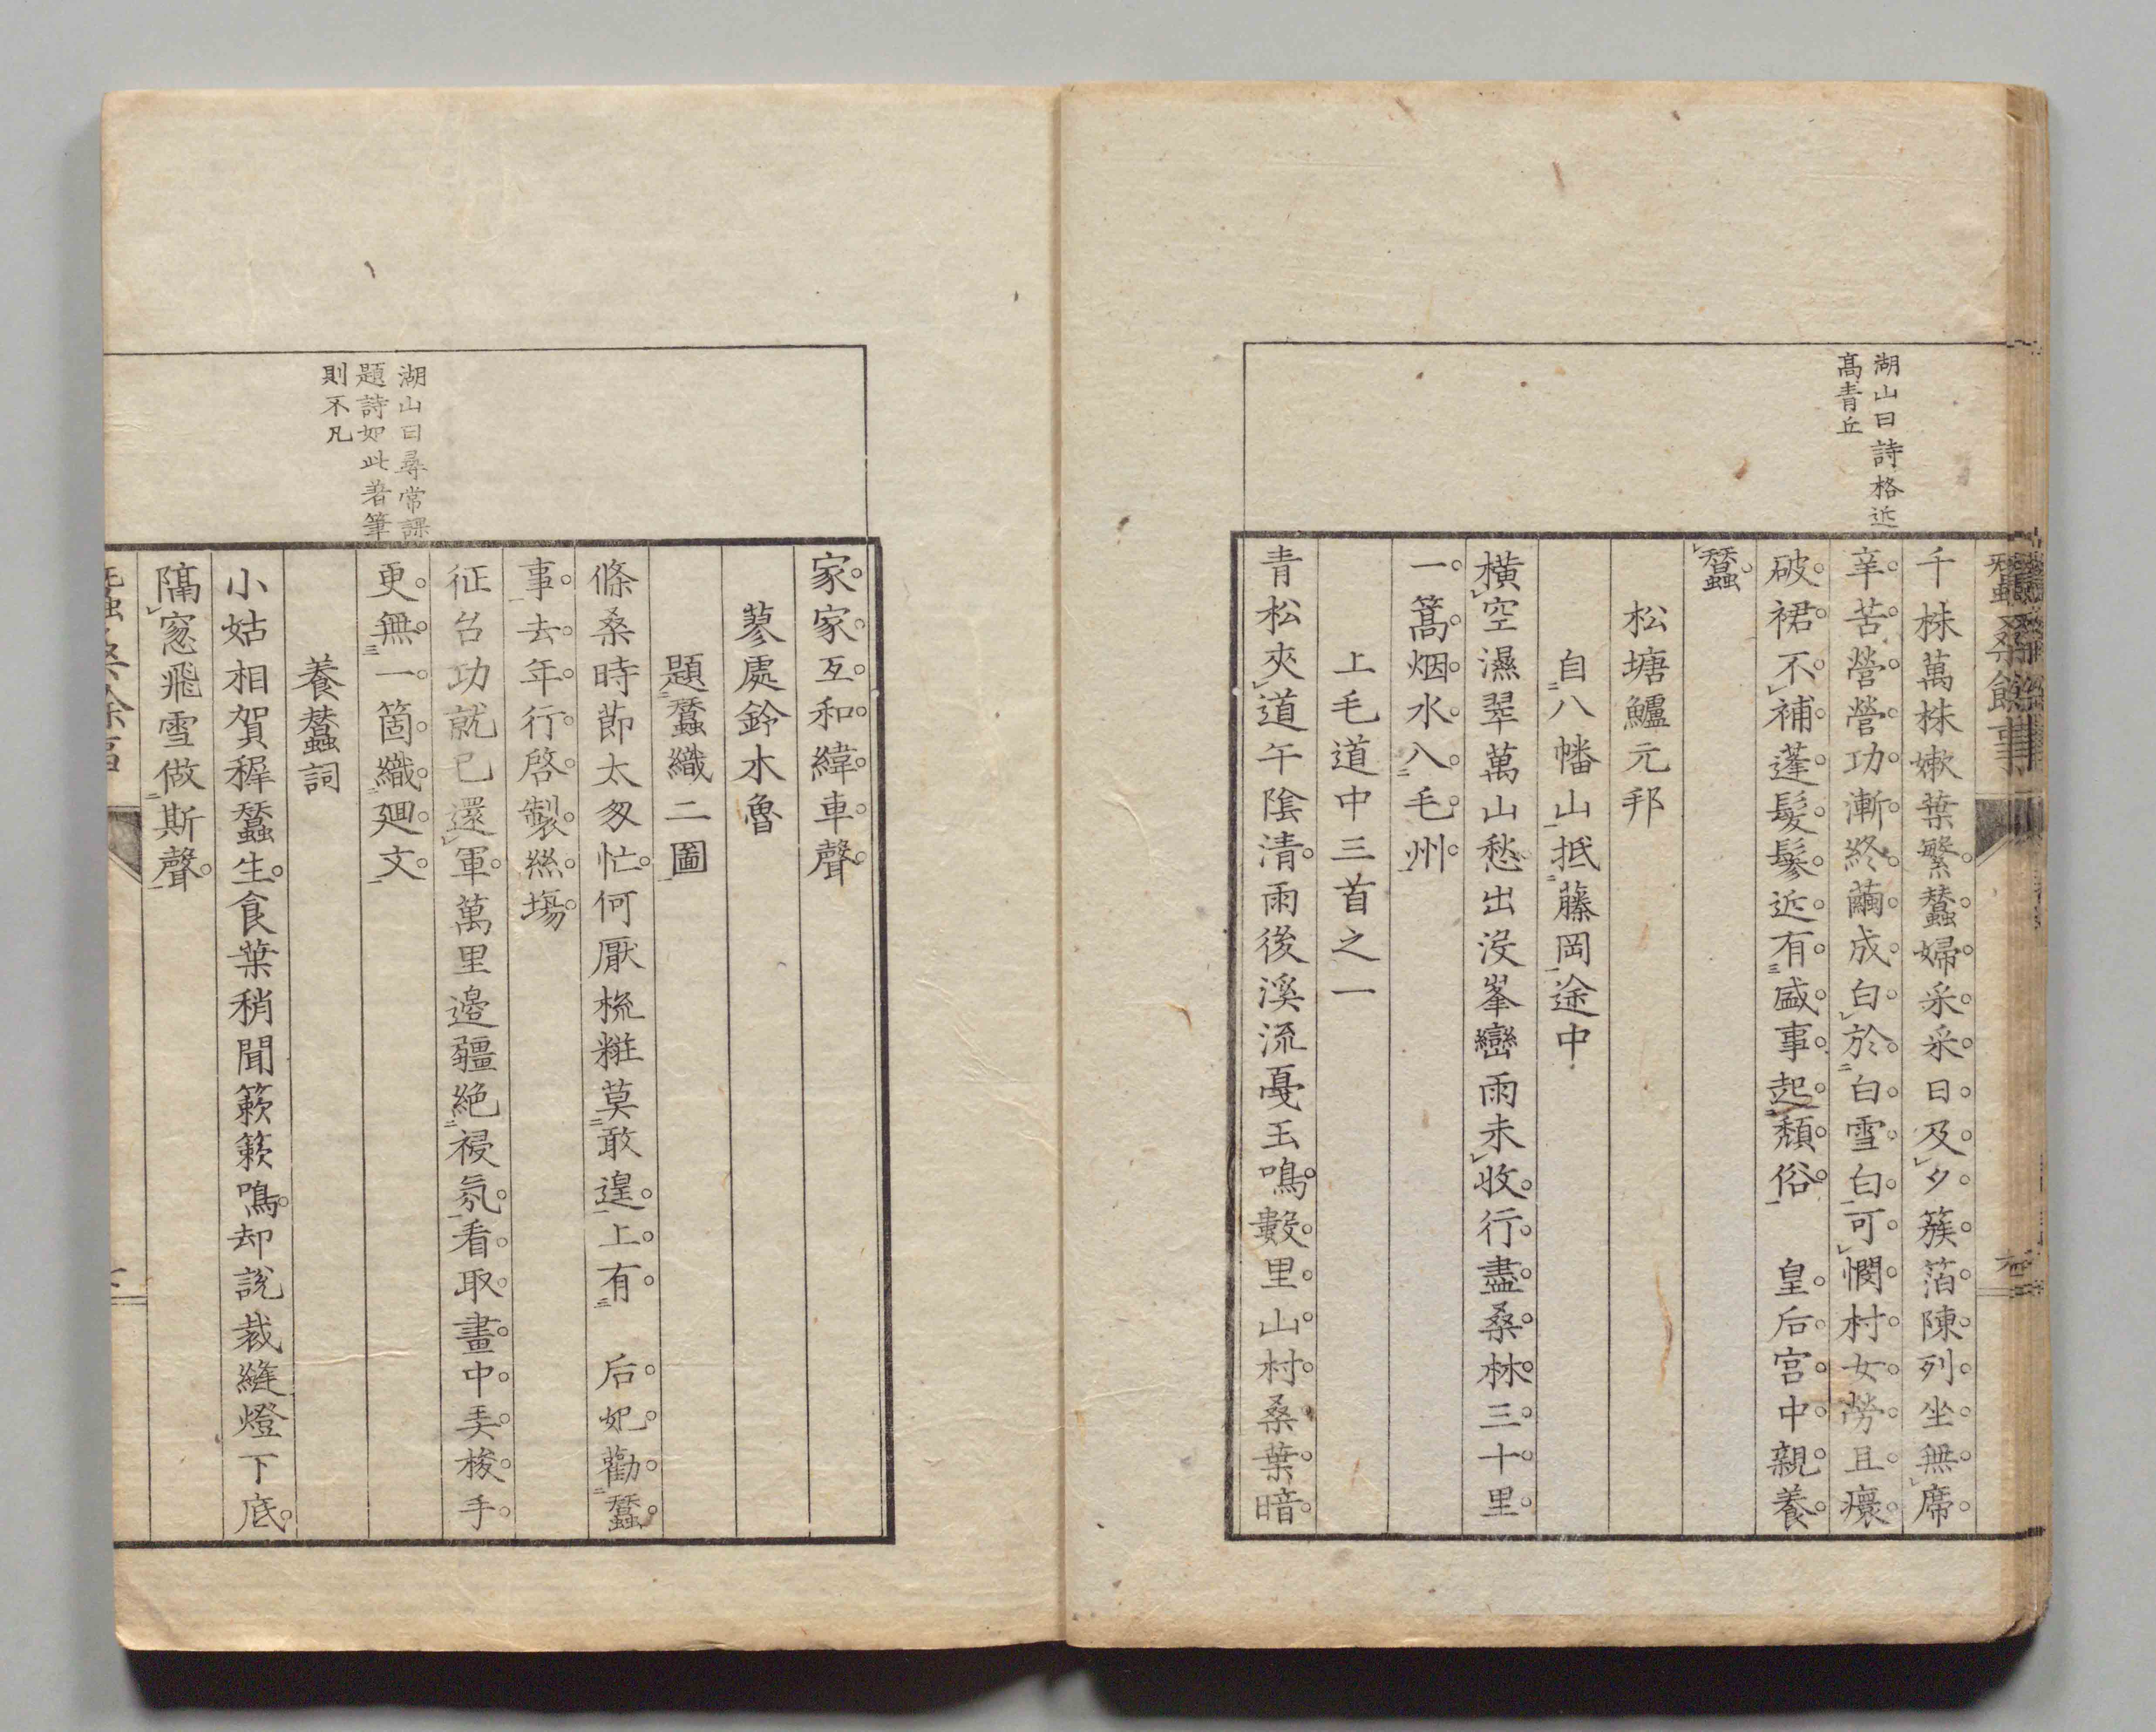 蠶桑餘事
湖山曰詩格近
高青丘
千株萬株嫩葉繁蠶婦采采日及夕簇箔陳列坐無席
辛苦營營功漸終繭成白於白雪白可憫村女勞且癏
破裙不補蓬髮鬖近有盛事起頽俗　皇后宮中親養
蠶
松塘鱸元邦
自八幡山抵藤岡途中
橫空濕翠萬山愁出沒峯巒雨未收行盡桑林三十里
一篙烟水入毛州
上毛道中三首之一
青松夾道午陰清雨後溪流戛玉鳴數里山村桑葉暗
家家互和緯車聲
蓼處鈴木魯
題蠶織二圖
條桑時節太匆忙何厭梳粧莫敢遑上有　后妃勸蠶
事去年行啓製絲場
湖山曰尋常課
題詩如此著筆
則不凡
征台功就已還軍萬里邊疆絕祲氛看取畫中美梭手
更無一箇織廻文
養蠶詞
小姑相賀穉蠶生食葉稍聞簌簌鳴却說裁縫燈下底
隔窓飛雪做斯聲